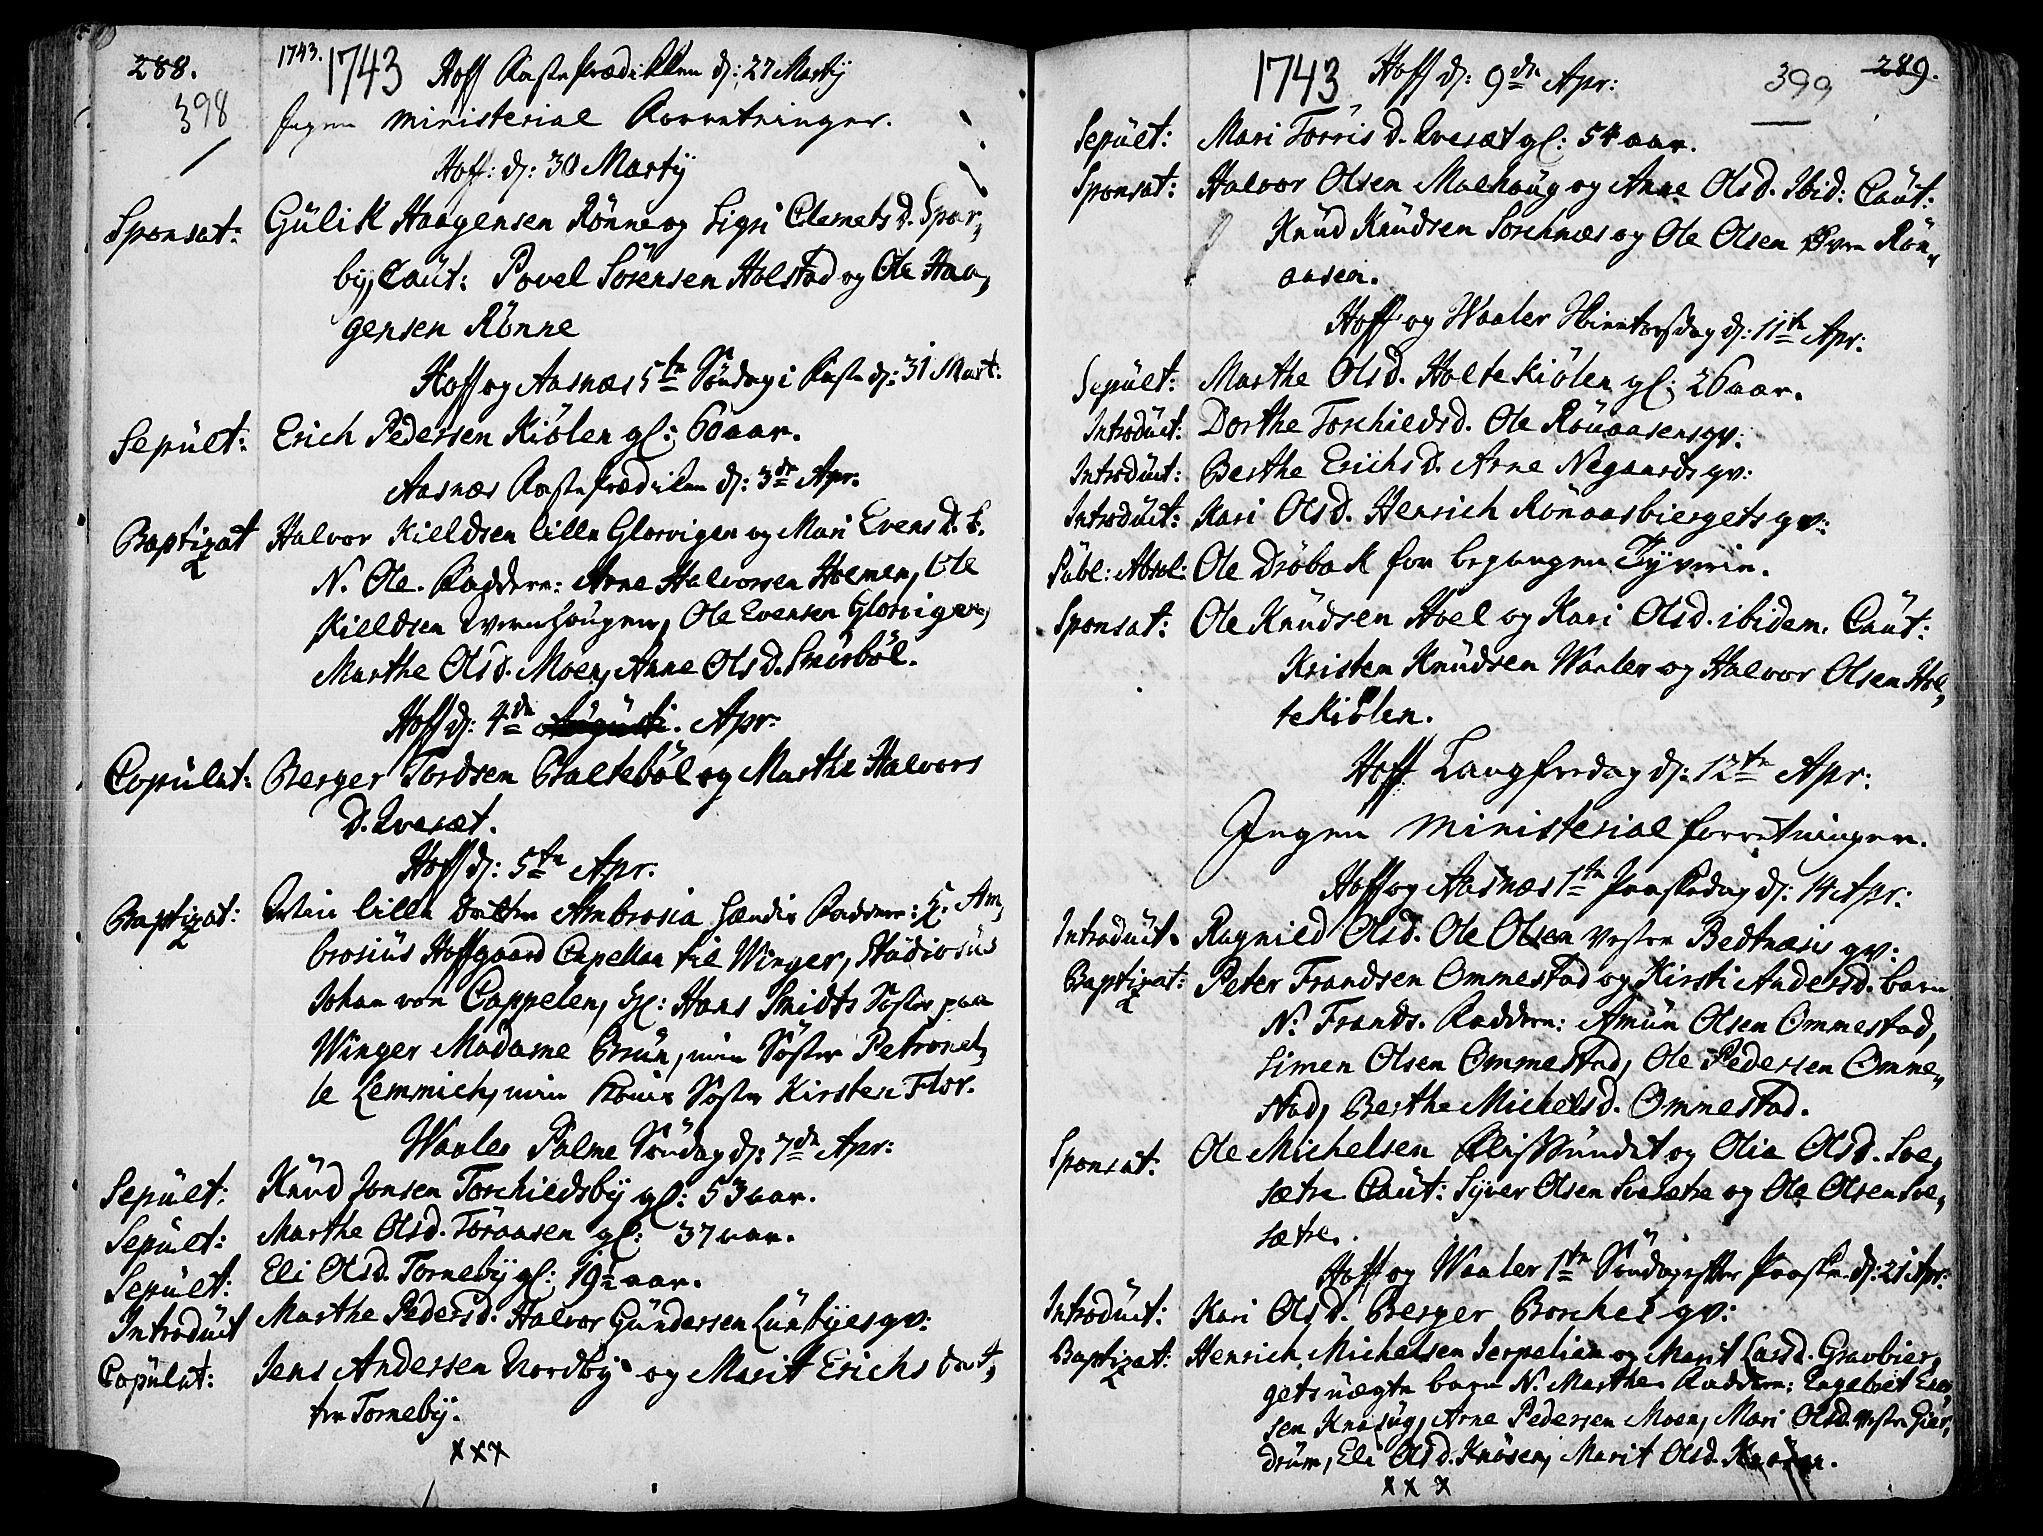 288.
398
1743.
1743 Hoff Faste prædikken d: 27 Martij
Ingen ministerial Forretninger.
Hoff: d: 30 Martij
Sponsat: Gülik Haagensen Rönne og Sigri Clemets D. Spar„
by, Caüt: Povel Sörensen Holstad og Ole Haa„
gensen Rönne
Hoff og Aasnæs 5te Söndag i Faste d: 31 Mart:
Sepült: Erich Pedersen Kiölen gl: 60 aar.
Aasnæs Faste prædiken d: 3de Apr:
Baptizat Halvor Kieldsen lille Glorvigen og Mari Evens D. b.
N. Ole. Faddere: Arne Halvorsen Holmen, Ole
Kieldsen Overhougen, Ole Evensen Glorvigen,
Marthe Olsd. Moen, Anne Olsd. Snürböl.
Hoff d: 4de Augusti. Apr:
Copülat: Berger Tordsen Balteböl og Marthe Halvors
D. Qvesæt.
Hoff d: 5te Apr.
Baptizat: lille datter Ambrosia Faddere: H. Am„
brosiüs Hoffgaard Capellan til Winger, Stüdiosüs
Johan von Cappelen, Sl: Hans Smidts Söster paa
Winger Madame Brün, min Söster Petronel„
le Lemmich, min Kones Söster Kirsten Flor.
Waaler Palme Söndag d: 7de Apr:
Sepült: Knüd Jonsen Torchieldsby gl: 53 aar.
Sepült: Marthe Olsd. Töraasen gl: 37 aar.
Sepült: Eli Olsd. Torneby gl: 19 aar.
Introdüit Marthe Pedersd. Halvor Gündersen Lünbyes qv:
Copülat: Jens Andersen Nordby og Marit Erichs dat„
ter Torneby.
x x x
289.
399
1743 Hoff d: 9de Apr:
Sepült: Mari Torris D. Qvesæt gl: 54 aar.
Sponsat: Halvor Olsen Malhaüg og Anne Olsd. Ibid: Caüt:
Knüd Knüdsen Sorchnæs og Ole Olsen Rön„
aasen.
Hoff og Waaler Skiertorsdag d: 11te Apr:
Sepült: Marthe Olsd. Holtekiölen gl: 26 aar.
Introdüit: Dorthe Torchieldsd. Ole Rönaasens qv:
Introdüit: Berthe Erichs D. Arne Negaards qv:
Introdüit: Kari Olsd. Henrich Rönaasbiergets qv:
Pübl: Absol: Ole Dröbak for begangen Tyverie.
Sponsat: Ole Knüdsen Hoel og Kari Olsd. ibidem. Caüt:
Kristen Knüdsen Waaler og Halvor Olsen Hol„
tekiölen.
Hoff Langfredag d: 12te Apr:
Ingen ministerial forretninger.
Hoff og Aasnæs 1te Paaskedag d: 14 Apr:
Introdüit. Ragnild Olsd. Ole Olsen vestre Bedtnæsis qv:
Baptizat: Peter Frandsen Ommestad og Kirsti Andersd. barn
N. Frands. Faddere: Amün Olsen Ommestad,
Simen Olsen Ommestad, Ole Pedersen Omme„
stad, Berthe Michelsd. Ommestad.
Sponsat: Ole Michelsen Flissündet og Olia Olsd. Sve„
sætre Caüt: Syver Olsen Svesætre og Ole Olsen Sve„
sætre.
Hoff og Waaler 1te Söndag efter Paaske d: 21 Apr:
Introdüit: Kari Olsd. Berger Borches qv:
Baptizat: Henrich Michelsen Jerpelien og Marit Larsd. Gravbier„
gets üægte barn N. Marthe. Faddere: Engebret
sen Knasüg, Arne Pedersen Moen, Mari Olsd. vestre Gier„
drüm, Eli Olsd. Knösen, Marit Olsd. Knösen.
x x x